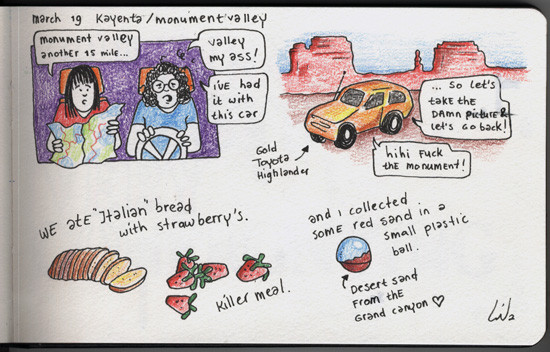 march 19 Kayenta/monument valley
monument valley
another 15 mile...
valley
my ass!
i've had
it with
this car
... so let's
take the
DAMN picture &
let's go back!
hihi fuck
the monument!
Gold
Toyota
Highlander
WE ATE "Italian" bread
with strawberry's.
Killer meal.
and i collected
some red sand in a
small plastic
ball.
Desert sand
From the
Grand canyon ♡